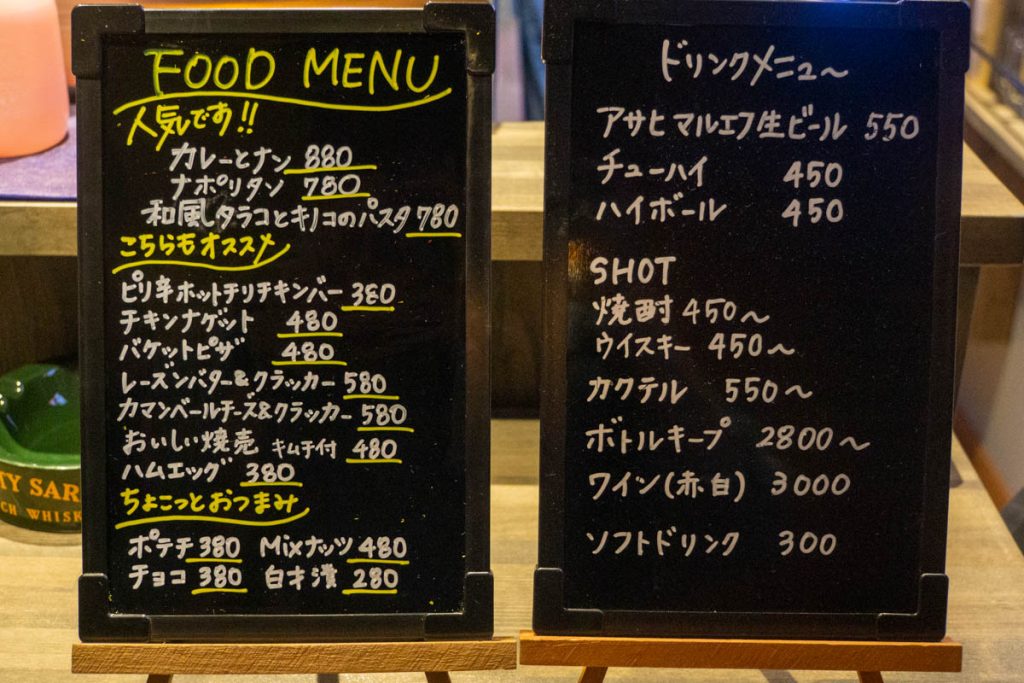 FOOD MENU
人気です!!
カレーとナン 880
ナポリタン 780
和風タラコとキノコのパスタ 780
こちらもオススメ
ピリ辛ホットチリチキンバー 380
チキンナゲット 480
バケットピザ 480
レーズンバター&クラッカー 580
カマンベールチーズ&クラッカー 580
おいしい焼売 キムチ付 480
ハムエッグ 380
ちょこっとおつまみ
ポテチ 380 Mixナッツ 480
チョコ 380 白才漬 280
ドリンクメニュ〜
アサヒ マルエフ生ビール 550
チューハイ 450
ハイボール 450
SHOT
焼酎 450〜
ウイスキー 450〜
カクテル 550〜
ボトルキープ 2800〜
ワイン(赤白) 3000
ソフトドリンク 300
TY SAR
CH WHISK